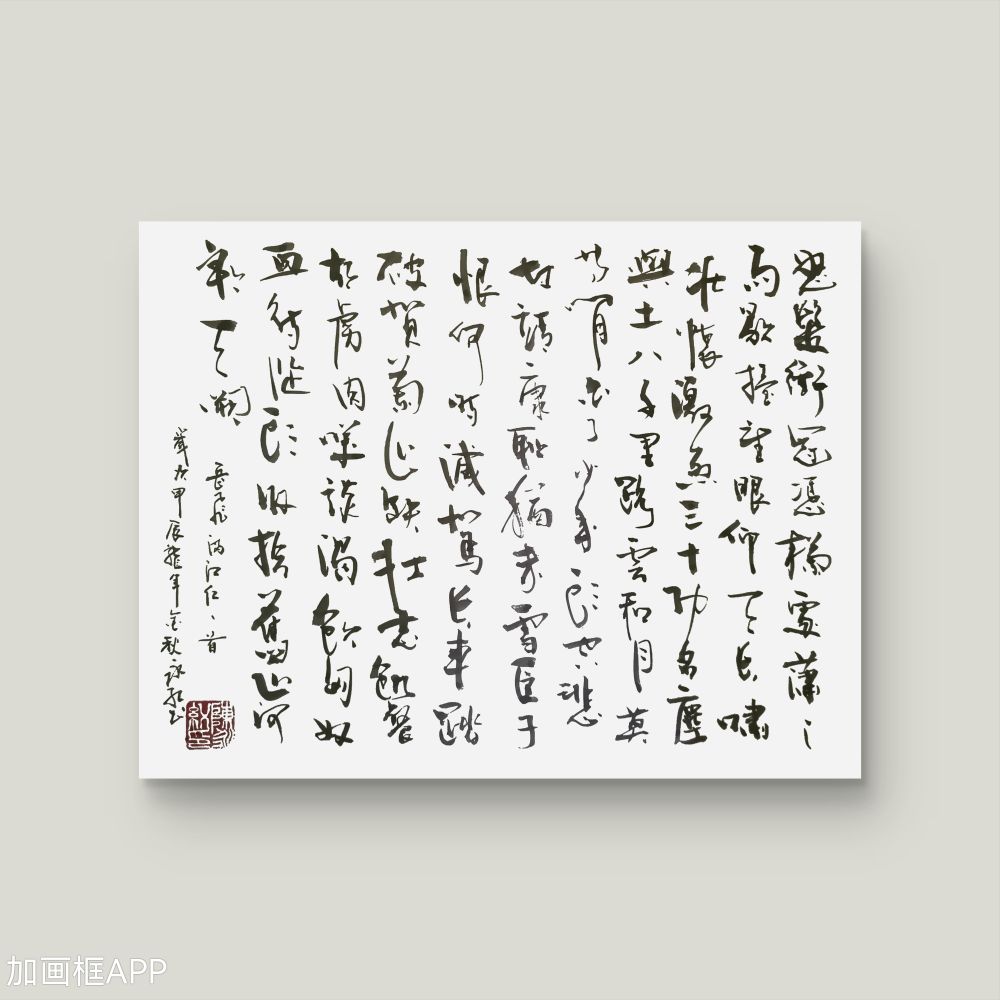 怒髮衝冠憑欄處瀟〻
雨歇擡望眼仰天長嘯
壯懷激烈三十功名塵
與土八千里路雲和月莫
等閒白了少年頭空悲
切靖康恥猶未雪臣子
恨何時滅駕長車踏
破賀蘭山缺壯志飢餐
胡虜肉笑談渴飲匈奴
血待從頭收拾舊山河
朝天闕
岳飛滿江紅一首
歲次甲辰龍年金秋永紅書
加画框APP